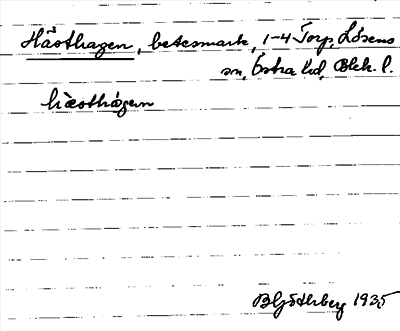 Hästhagen, betesmark, 1-4 Torp, Lösens
sn, Östra hd, Blek. l.
hæsthágen
B Göthberg 1935